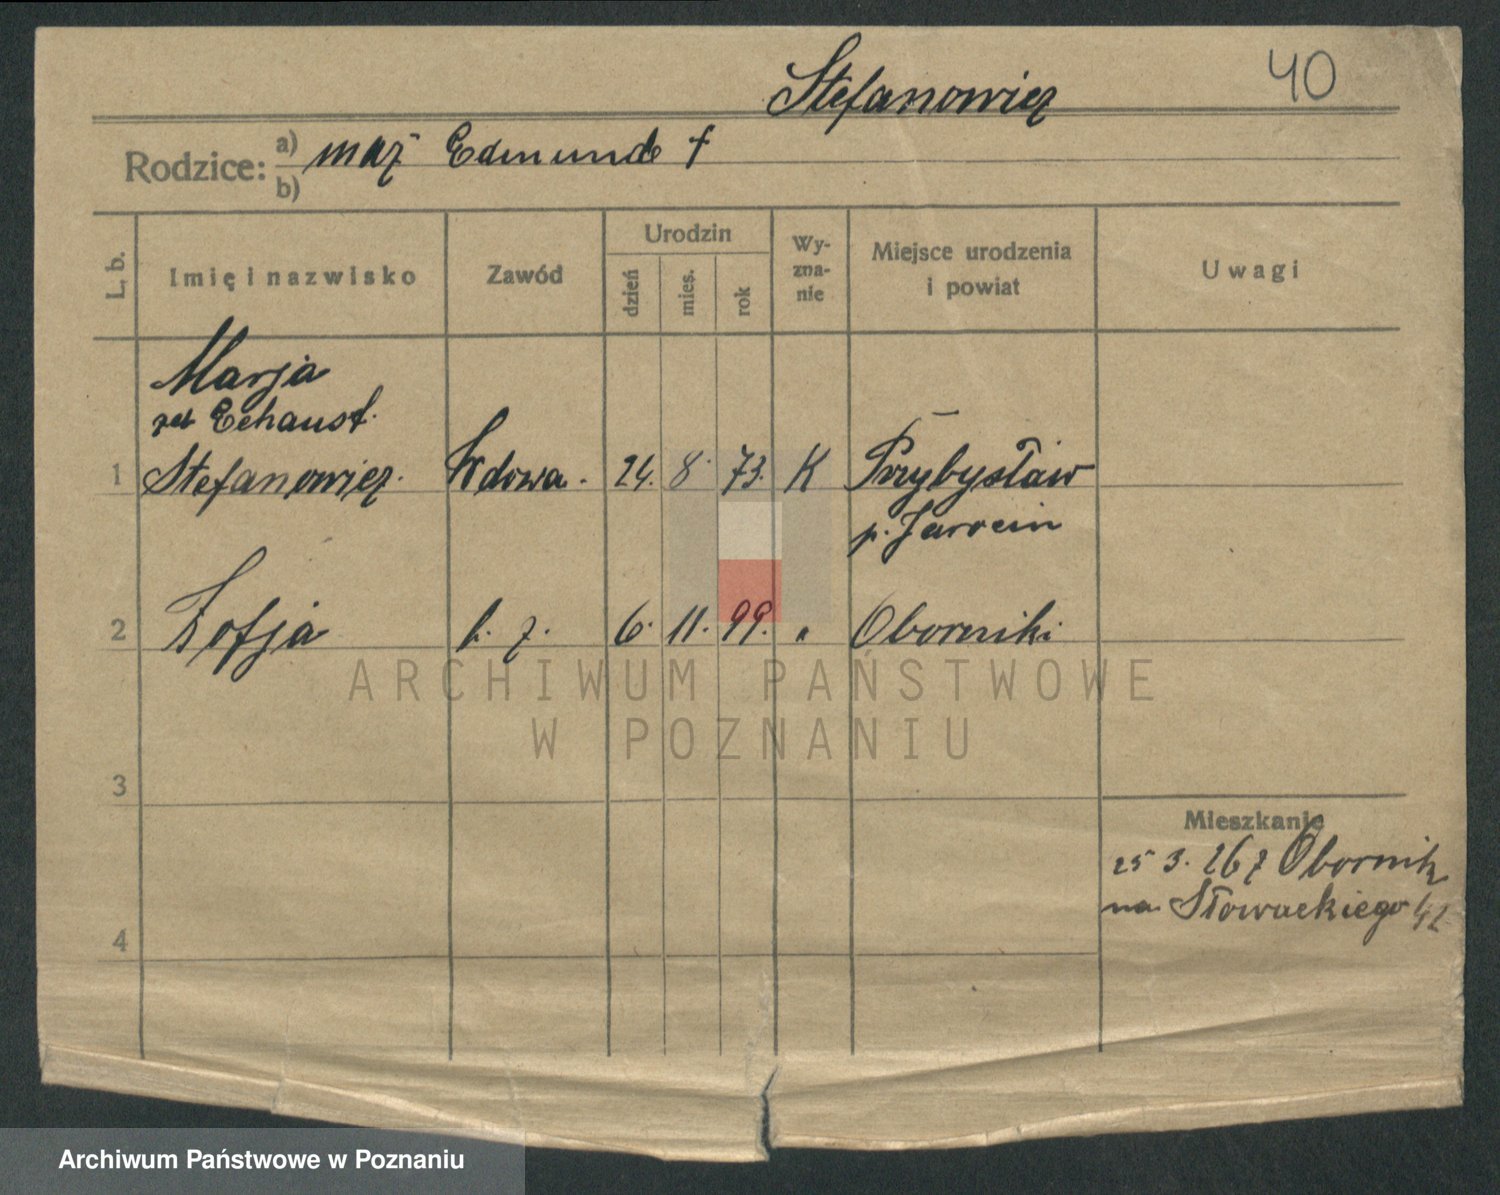 Stefanowicz 40
Rodzice: a) mąż Edmund †
b)
L. b. Imię i nazwisko Zawód Urodzin dzień mies. rok Wy-zna-nie Miejsce urodzenia i powiat Uwagi
Marja
Echaust.
1 Stefanowicz. Wdowa. 24. 8. 73. K Przybysław
p. Jarocin
2 Zofja b. z. 6. 11. 99. " Oborniki
ARCHIWUM PAŃSTWOWE
W POZNANIU
3
Mieszkanie
25 3. 26 z Obornik
na Słowackiego 42
4
Archiwum Państwowe w Poznaniu